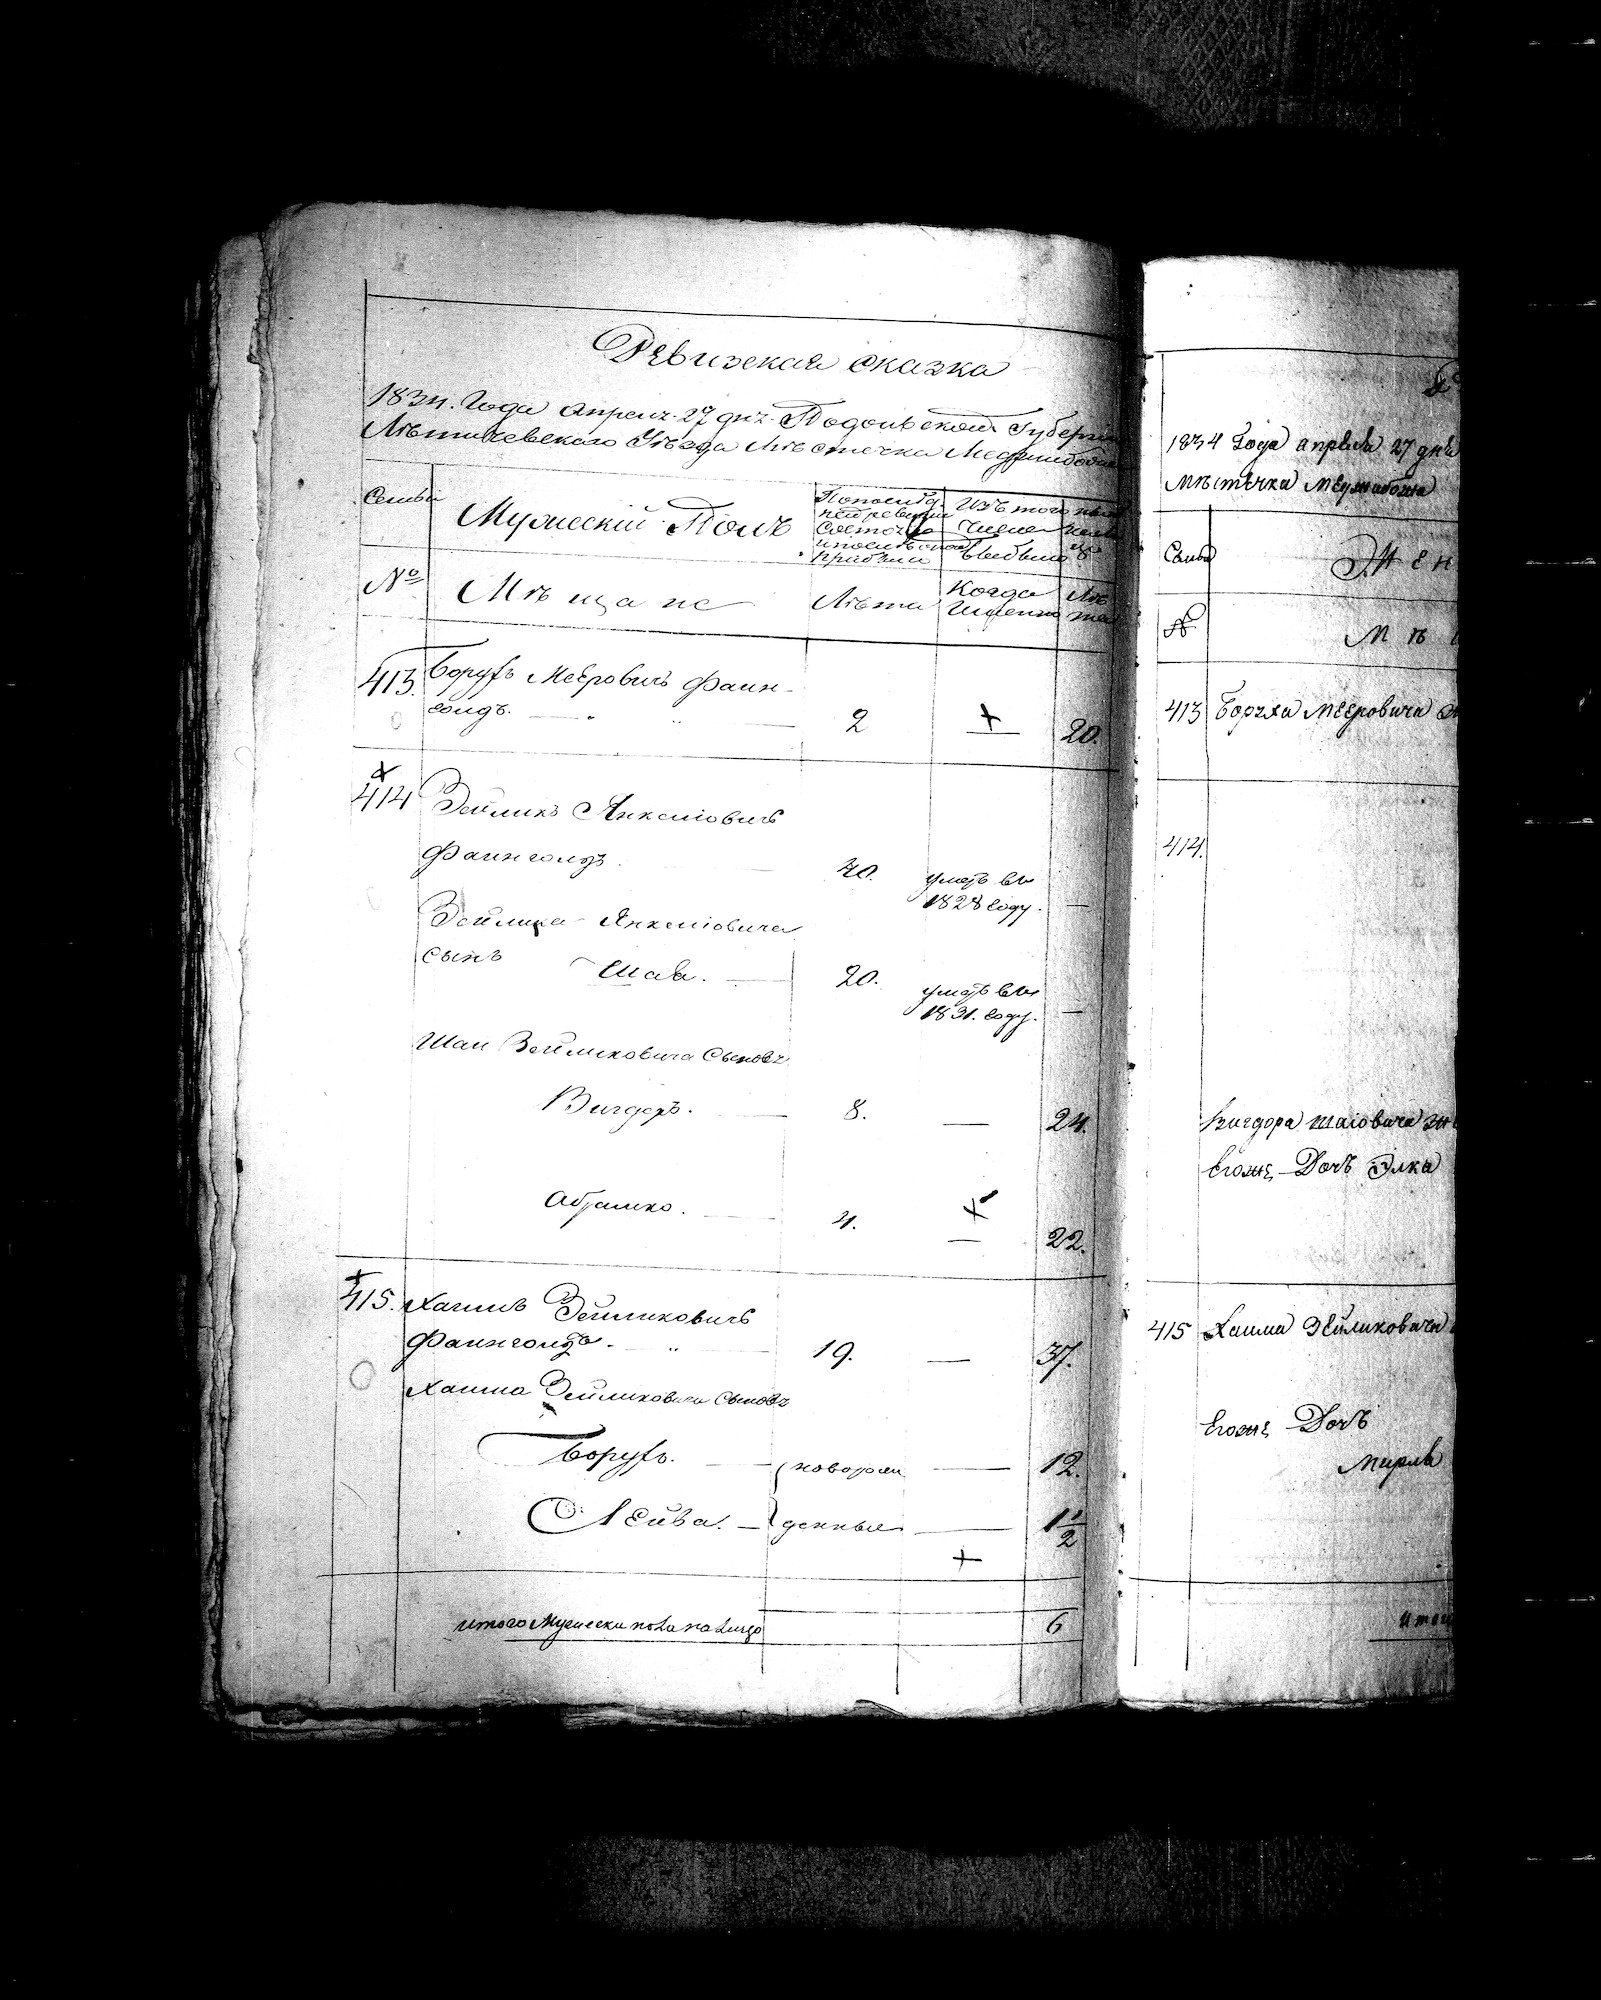 Ревизская сказка
1834. Года апреля 27 дня Подольской Губернии
Летичевского Уезда Местечка Меджибожа
Семьи
Мужеский Полъ
По последней ревизии состояло и после оной прибыло
Изъ того числа выбыло
№
Мѣщане
Лѣта
Когда Именно
Лѣта
413. Борухъ Мееровичъ Фаин-
голдъ. 2 + 20.
414 Зейликъ Янкелiовичъ
Фаинголдъ. 40. умеръ въ
1828 году. —
Зейлика Янкелiовича
сынъ Шая. 20. умеръ въ
1831. году. —
Шаи Зейликовича Сыновья
Вигдоръ. 8. — 24.
Абрамко. 4. + 22.
415. Хаимъ Зейликовичъ
Фаинголдъ. 19. — 37.
Хаима Зейликовича Сыновья
Борухъ. новорож — 12.
Лейба. денные — 1 1/2
+
итого Мужеска пола на лицо 6
1834 Года апреля 27 дня
Мѣстечка Меджибожа
Семьи
Жен
№
Мѣ
413 Боруха Мееровича
414.
Вигдора Шаiовича
Егоже Дочь Элка
415 Хаима Зейликовича
Егоже Дочь
Мирля
Итого